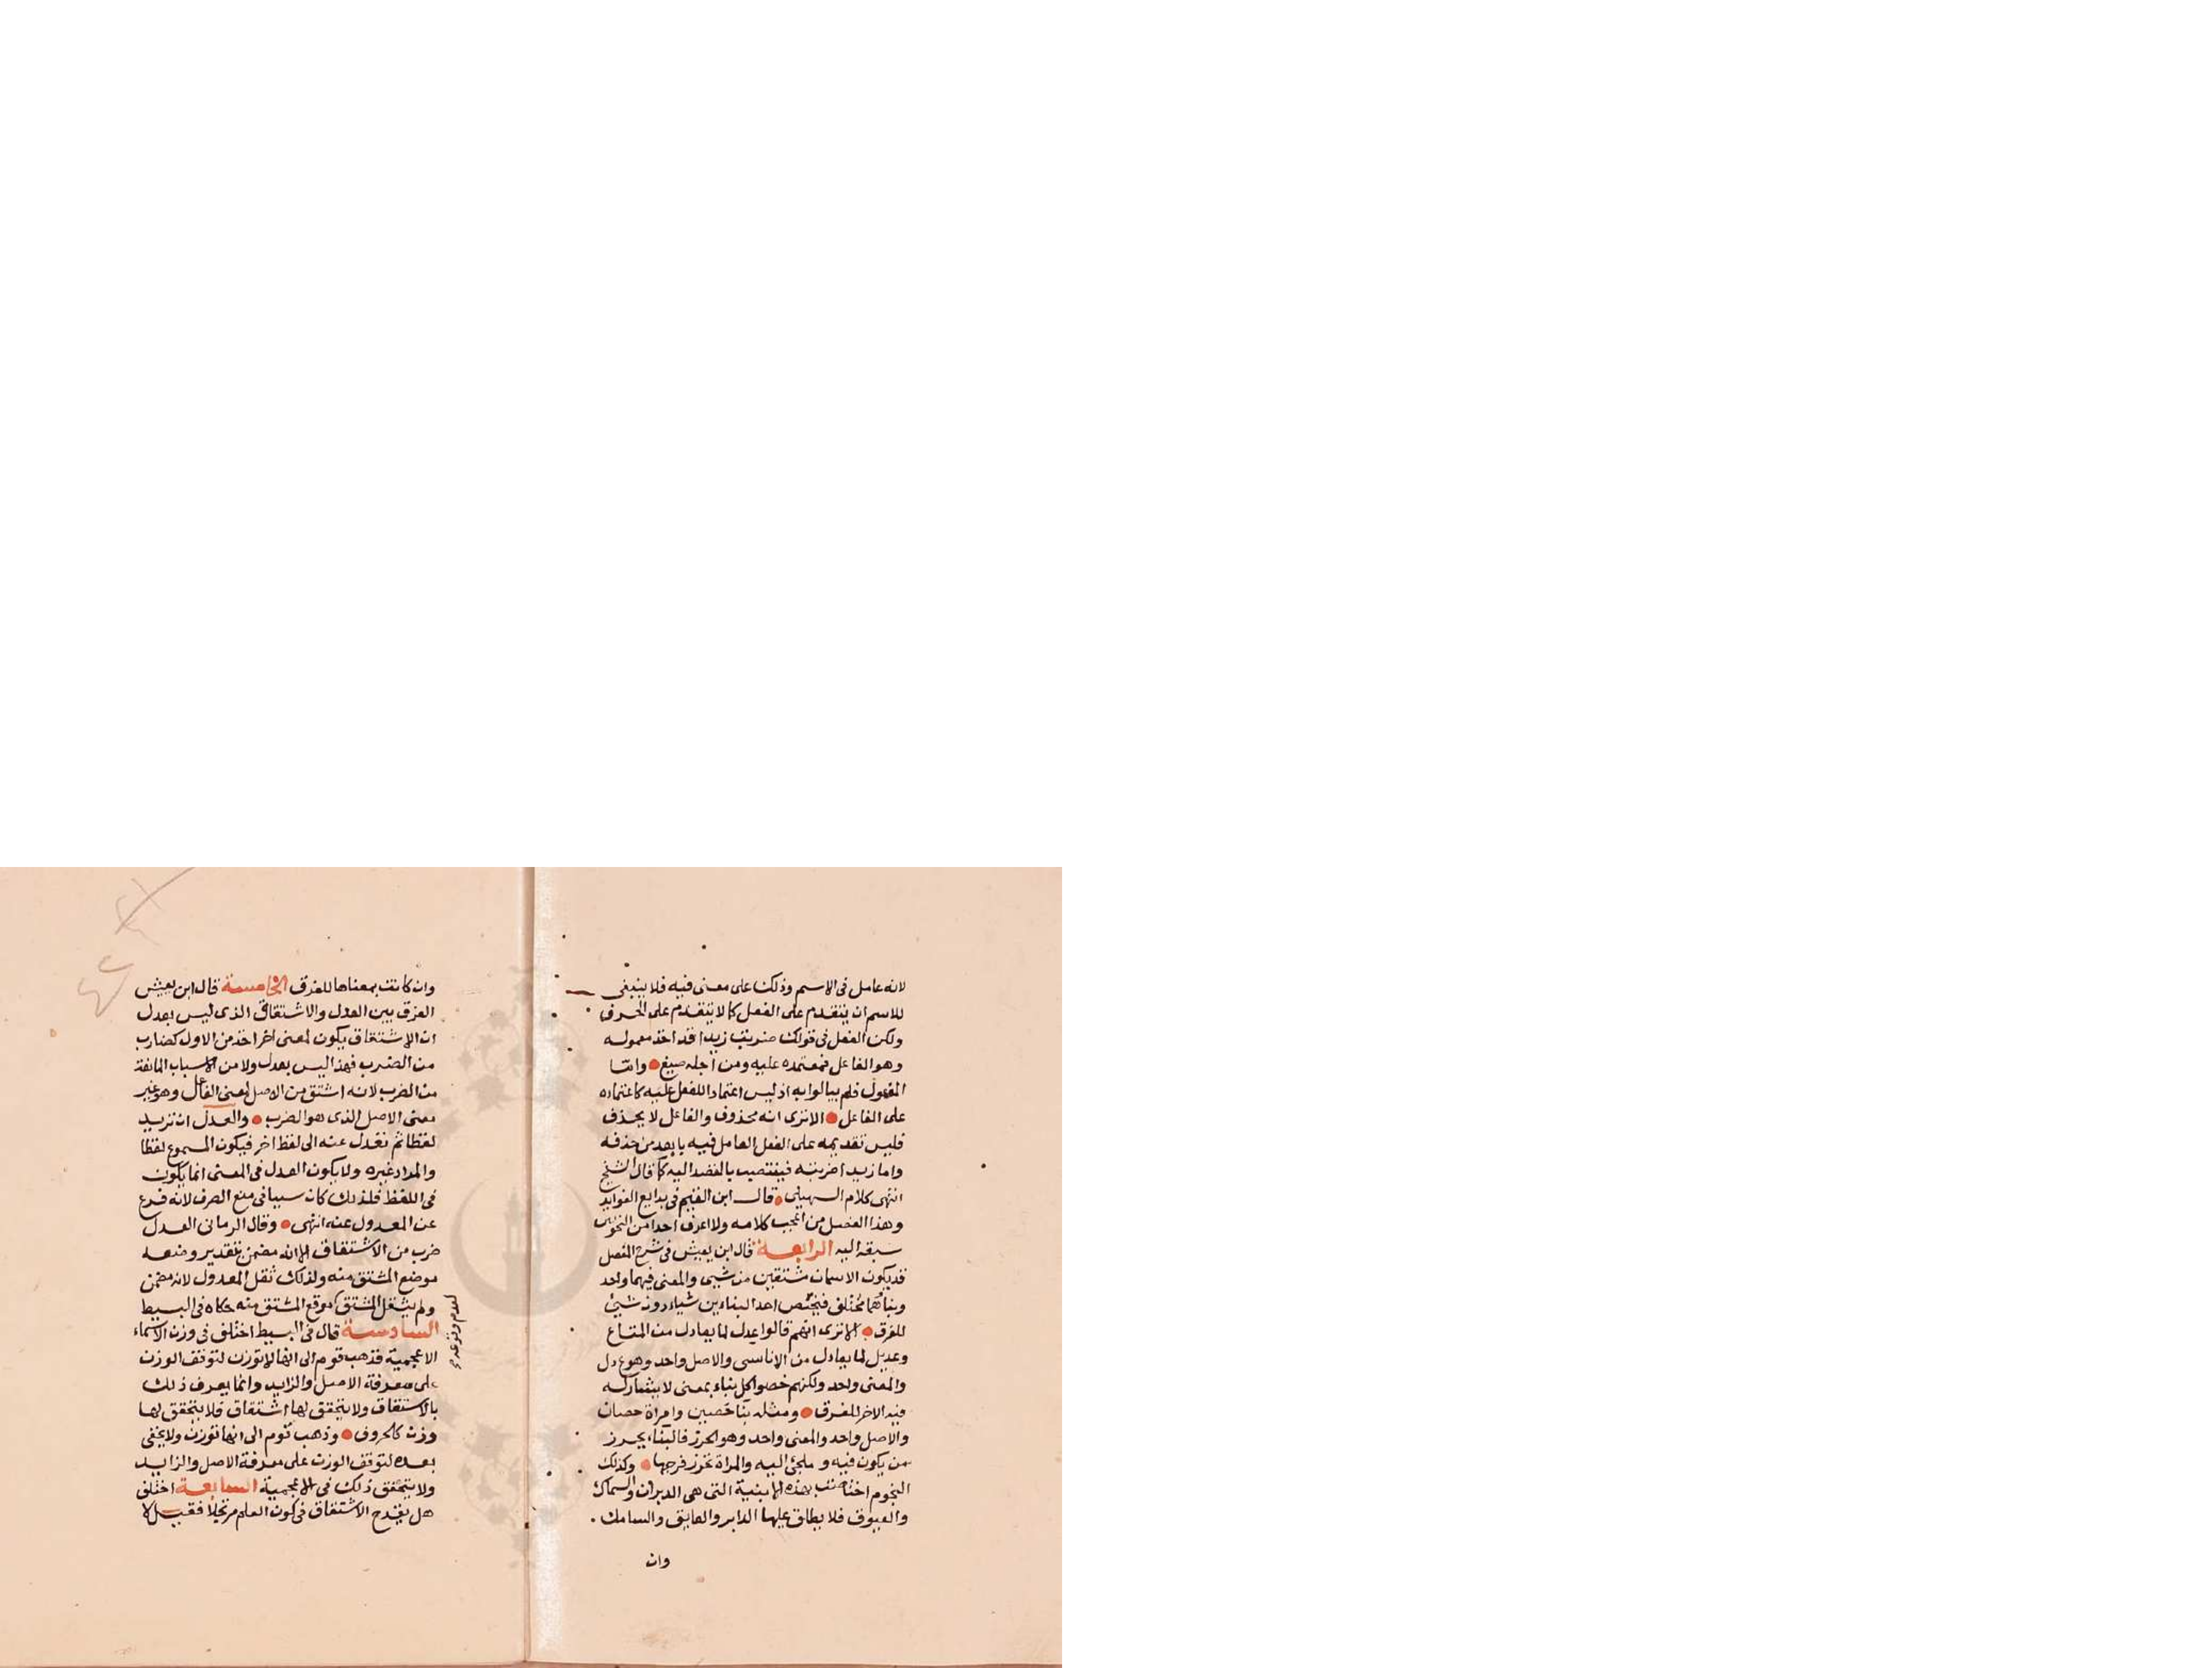 لانه عامل فى الاسم وذلك على معنى فيه فلا ينبغى
للاسم ان يتقدم على الفعل كما لا يتقدم على الحرف
ولكن الفعل فى قولك ضربت زيدا قد اخذ معموله
وهو الفاعل فمعتمده عليه ومن اجله صيغ وامّا
المفعول فلم يبالوا به اذ ليس اعتماد الفعل عليه كاعتماده
على الفاعل الا ترى انه محذوف والفاعل لا يحذف
فليس تقديمه على الفعل العامل فيه بابعد من حذفه
واما زيدا ضربته فينتصب بالقصد اليه كما قال الشيخ
انتهى كلام السهيلى قال ابن القيم فى بدايع الفوايد
وهذا الفصل من اعجب كلامه ولا اعرف احدا من النحويين
سبقه اليه الرابعة قال ابن يعيش فى شرح المفصل
قد يكون الاسمان مشتقين من شيئ والمعنى فيهما واحد
وبناؤهما مختلف فيختص احد البنائين شيأ دون شيئ
للفرق الا ترى انهم قالوا عدل لما يعادل من المتاع
وعديل لما يعادل من الاناسى والاصل واحد وهو ع د ل
والمعنى واحد ولكنهم خصوا كل بناء بمعنى لا يشاركه
فيه الاخر للفرق ومثله بناء حصين وامراة حصان
والاصل واحد والمعنى واحد وهو الحرز فالبناء يحرز
من يكون فيه و ملجئ اليه والمراة تحرز فرجها وكذلك
النجوم اختصت بهذه الابنية التى هى الدبران والسماك
والعيوق فلا يطلق عليها الدابر والعايق والسامك
وان
وان كانت بمعناها للفرق الخامسة قال ابن يعيش
الفرق بين العدل والاشتقاق الذى ليس بعدل
ان الاشتقاق يكون لمعنى اخر اخذ من الاول كضارب
من الضرب فهذا ليس بعدل ولا من الاسباب المانعة
من الضرب لانه اشتق من الاصل لمعنى الفاعل وهو غير
معنى الاصل الذى هو الضرب والعدل ان تريد
لفظا ثم تعدل عنه الى لفظ اخر فيكون المسموع لفظا
والمراد غيره ولا يكون العدل فى المعنى انما يكون
فى اللفظ فلذلك كان سببا فى منع الصرف لانه فرع
عن المعدول عنه انتهى وقال الرمانى العدل
ضرب من الاشتقاق الا انه مضمن بتقدير وضعه
موضع المشتق منه ولذلك ثقل المعدول لانه مضمن
ولم يثقل المشتق موقع المشتق منه حكاه فى البسيط
لعدم وقوعه
السادسة قال فى البسيط اختلف فى وزن الاسماء
الاعجمية فذهب قوم الى انها لا توزن لتوقف الوزن
على معرفة الاصل والزايد وانما يعرف ذلك
بالاشتقاق ولا يتحقق لها اشتقاق فلا يتحقق لها
وزن كالحروف وذهب قوم الى انها توزن ولا يخفى
بعده لتوقف الوزن على معرفة الاصل والزايد
ولا يتحقق ذلك فى الاعجمية السابعة اختلف
هل يقدح الاشتقاق فى كون العلم مرتجلا فقيل لا